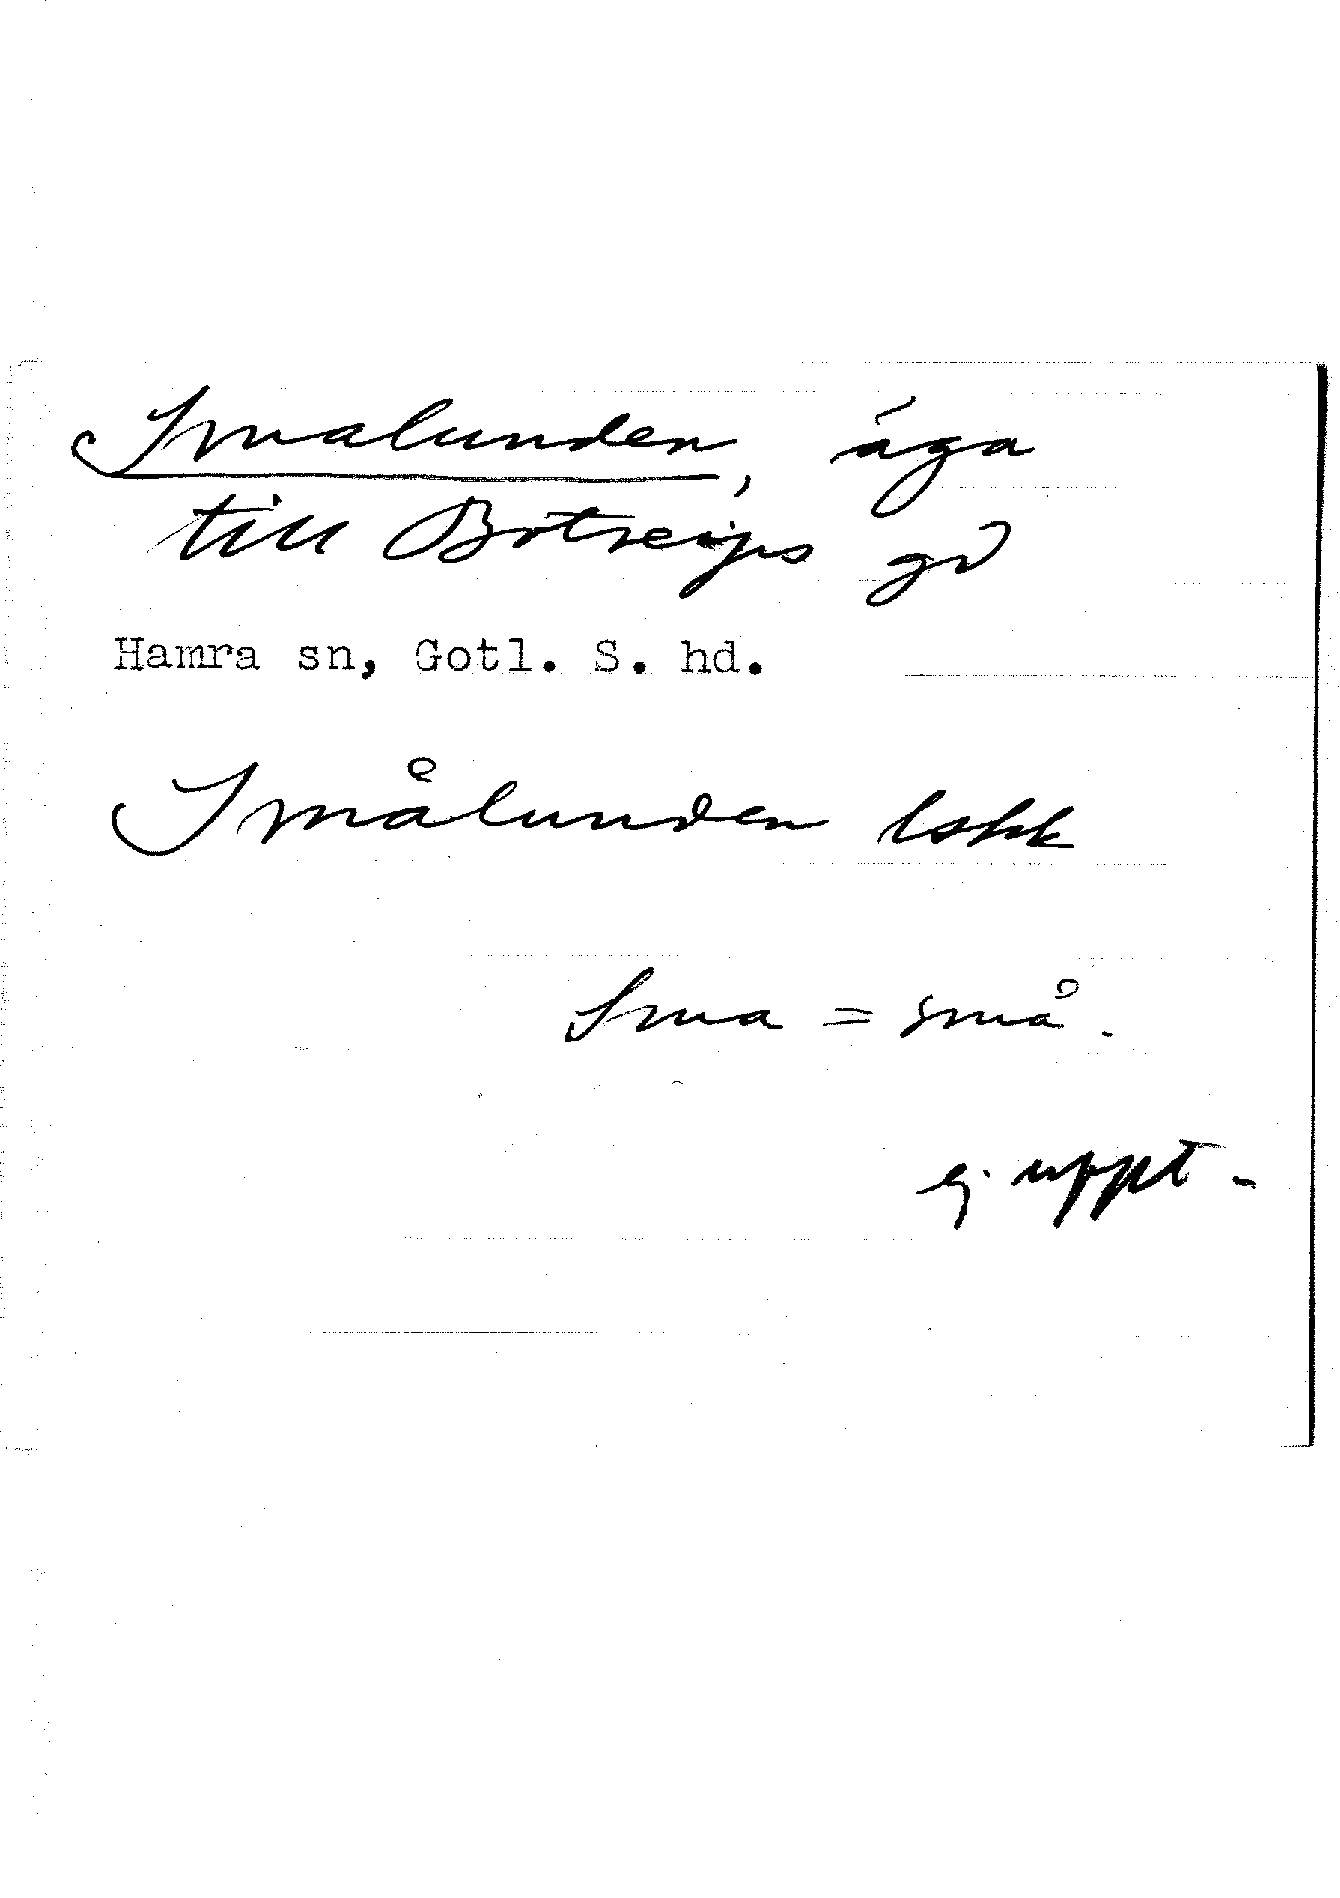 Smalunden, äga
till Botreips gd
Hamra sn, Gotl. S. hd.
Smålunden lskk
Sma = små.
ej uppt.